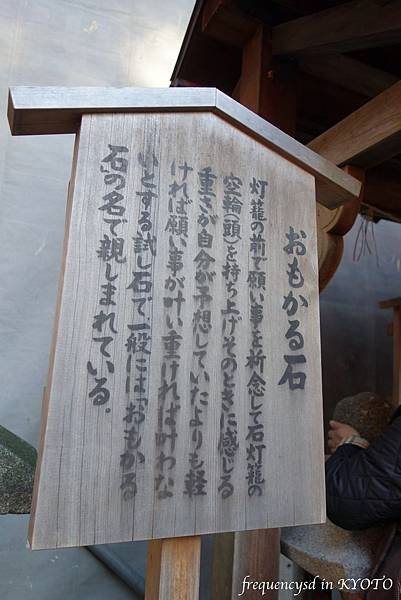 おもかる石
灯籠の前で願い事を祈念して石灯籠の
空輪(頭)を持ち上げそのときに感じる
重さが自分が予想していたよりも軽
ければ願い事が叶い重ければ叶わな
いとする試し石で一般には「おもかる
石」の名で親しまれている。
frequencysd in KYOTO